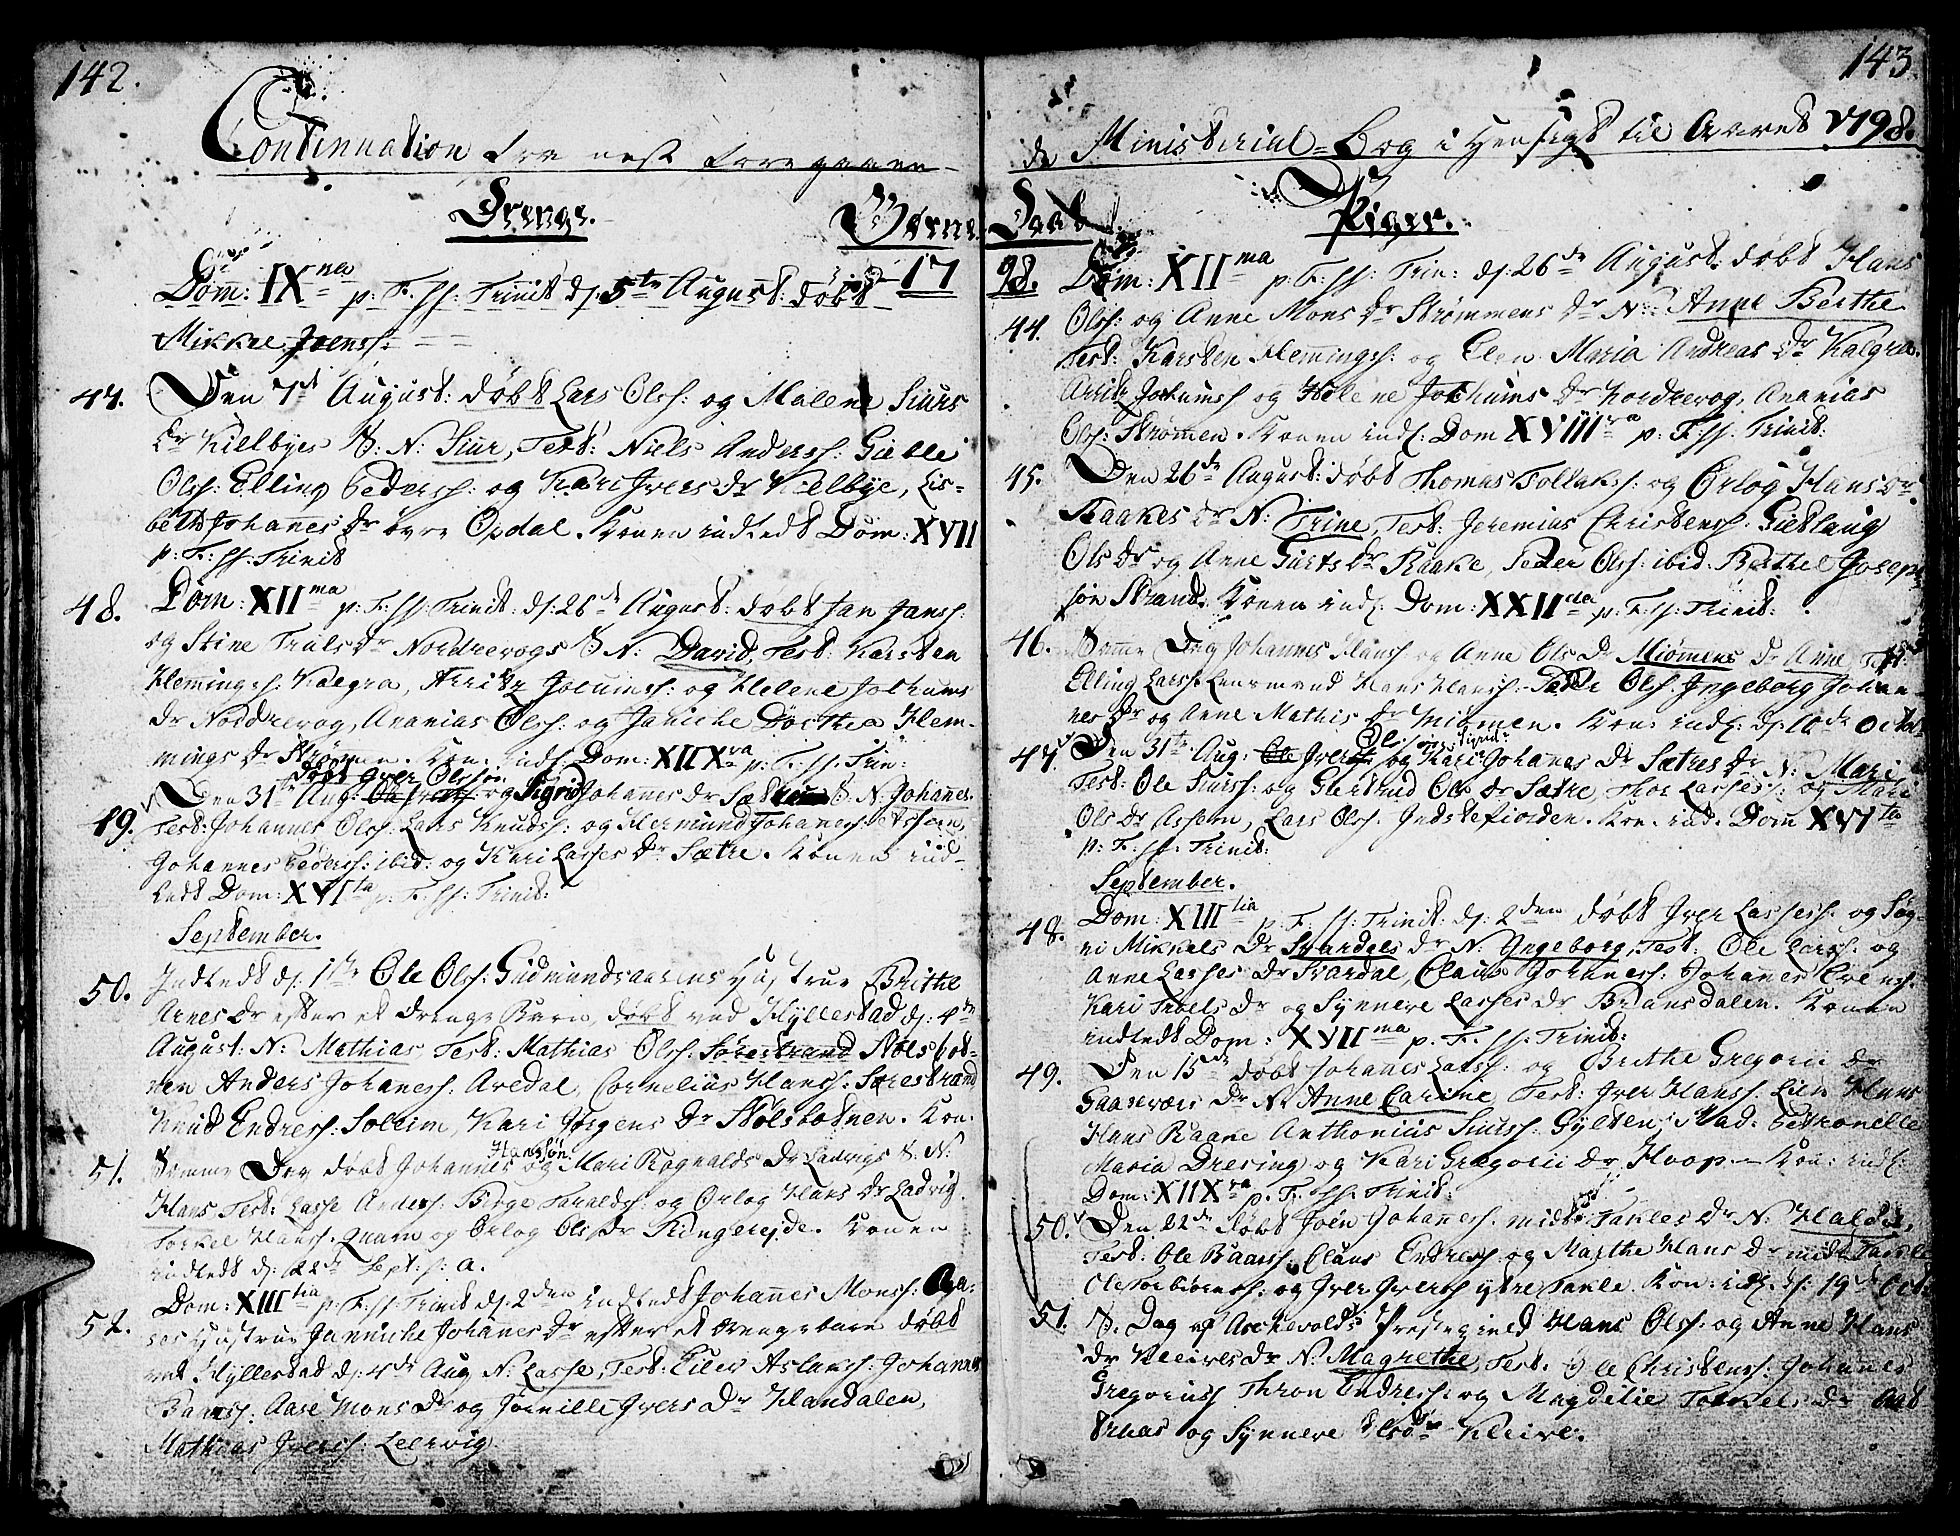 142.
Continuation fra nest foregaaen-
Drenge. Børne
17
Dom: IX na p: F: ss: Trinit d: 5te August: døbt
Mikkel Joenss:
47. Den 7d August: døbt Lars Olss: og Malene Siurs
Dr Kielbyes S: N: Siur, Test: Niels Anderss: Gieble
Olss: Elling Pederss: og Kari Ivers Dr Kielbye, Lis-
beth Johannes Dr øvre Opdal. Konen indledt Dom: XVII
p: F: ss: Trinit
48. Dom: XII ma p: F: ss: Trinit: d: 26de August: døbt Jan Janss:
og Stine Truls Dr Nordrevogs S N: David, Test: Karsten
Hemmingss: Kalgra, Arritz Jokumss: og Helene Jochums
Dr Nordrevog, Ananias Olss: og Janiche Dorthea Hem-
mings Dr Strømen. Kon. indl: Dom: XIIX va p: F: ss: Trin:
døbt Iver Olsson
49. Den 31te Aug: og Sigrid Johannes Dr Sætrens S. N. Johannes.
Test: Johannes Olss: Lars Knudss: og Hermund Johaness: Assom,
Johannes Pederss: ibid: og Kari Lasses Dr Sætre. Konen ind-
ledt Dom: XVI ta p: F: ss: Trinit:
September.
50. Indledt d: 1ste Ole Olss: Gudmundsaasens Hustrue Brithe
Arnes Dr efter et Drenge Barn, døbt ved Hyllestad d: 4de
August: N: Mathias, Test: Mathias Olss. Sørestrand Nølsbot-
nen Anders Johaness: Aredal, Cornelius Hanss: Sørestrand
Knud Endress: Solem, Kari Jørgens Dr Nølsbotnen. Kon:
Hanssøn
51. Samme Dag døbt Johannes og Mari Rognalds Dr Ladvigs S. N:
Hans, Test: Lasse Anders: Børge Haralds: og Orlog Hans Dr Ladvig.
Torkel Hanss. Quam og Orlog Ols Dr Ringereide. Konen
indledt d: 22de Sept: s: a.
52. Dom: XIII tia p: F: ss: Trinit d: 2den indledt Johannes Monss: Aa-
ses Hustrue Janniche Johanes Dr efter et Drengebarn døbt
ved Hyllestad d: 4de Aug N: Lasse, Test: Eilev Aslakss: Johannes
Baarss: Aase Mons Dr og Jørnille Ivers Dr Handalen,
Mathias Iverss: Leervig.
143
de Ministerial-Bog i Hensigt til Aaret 1798.
Daab Piger.
98. Dom: XII ma p: F: ss: Trin: d: 26de August: døbt Hans
44. Olss: og Anne Mons Dr Strømmens Dr N: Anne Berthe
Test: Karsten Hemmingss: og Elen Maria Andreas Dr Kalgra.
Arritz Jochumss og Helene Jochums Dr Nordrevog, Ananias
Olss: Strømen. Konen indl: Dom XVIII va p: F: ss: Trinit:
45. Den 26de August: døbt Thomas Tollakss: og Orlog Hans Dr
Raakes Dr N: Trine, Test: Jeremias Christenss. Gietlaug
Ols Dr og Anne Gurts Dr Raake, Peder Olss: ibid: Berthel Joseph
søn Strand. Konen indl: Dom: XXII da p: F: ss: Trinit:
46. Samme Dag Johannes Hanss og Anne Ols Dr Miømens Dr Anne Test:
Elling Larss. Lensmand Hans Hanss: Takle Olss. Ingeborg Johan-
nes Dr og Anne Mathis Dr Miømen. Kon: indl: d: 10de Octob
Ols Sigrid
47. Den 31te Aug: Ole Iverss og Kari Johanes Dr Sætres Dr N: Mari
Test: Ole Siurss: og Giertrud Ols Dr Sætre Thor Lasses: og Mari
Ols Dr Assom, Lars Olss. Indstefiorden. Kon: ind: Dom XVI ta
p: F: ss: Trinit:
September.
48. Dom: XIII tia p: F: ss: Trinit: d: 2den døbt Iver Lassess. og Søg-
ni Mikkels Dr Svardals Dr N: Ingeborg, Test: Ole Larss: og
Anne Lasses Dr Svardal, Claus Johaness: Johanes
Kari Troels Dr og Synneve Lasses Dr Brandsdalen. Konen
indledt Dom: XVII ma p: F: ss: Trinit:
49. Den 15de døbt Johanes Larss: og Brithe Gregorii Dr
Gaaseværs Dr N: Anne Carine, Test: Iver Hanss: Lien Hans
Hans Raake Anthonius Siurss: Gylten, Mad. Petronelle
Maria Dresing og Kari Gregorii Dr Hoop. Kon: indl:
Dom: XIIX va p: F: ss: Trinit:
50. Den 22de døbt Joen Johaness. midt Takles Dr N: Halda,
Test: Ole Baarss: Claus Endress: og Marthe Hans Dr midt Takle
Ole Torbiørnss: og Iver Iverss ytre Takle. Kon: indl: d: 19de Oct:
51. S. Dag af Askevolds Prestegield Hans Olss: og Anne Hans
Dr Kleives Dr N: Magrethe, Test. Ole Christenss: Johannes
Gregoriuss Thron Endress: og Magdelie Torkels Dr
og Synneve Elsdr Kleive.